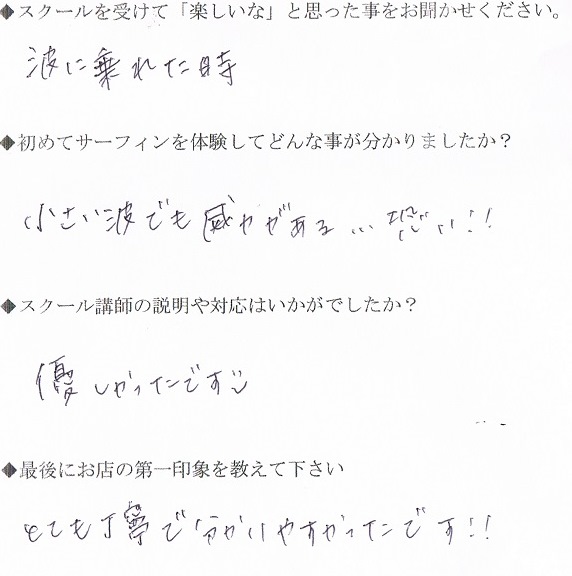 ◆スクールを受けて「楽しいな」と思った事をお聞かせください。
波に乗れた時
◆初めてサーフィンを体験してどんな事が分かりましたか？
小さい波でも威力がある…恐い!!
◆スクール講師の説明や対応はいかがでしたか？
優しかったです
◆最後にお店の第一印象を教えて下さい
とても丁寧で分かりやすかったです!!